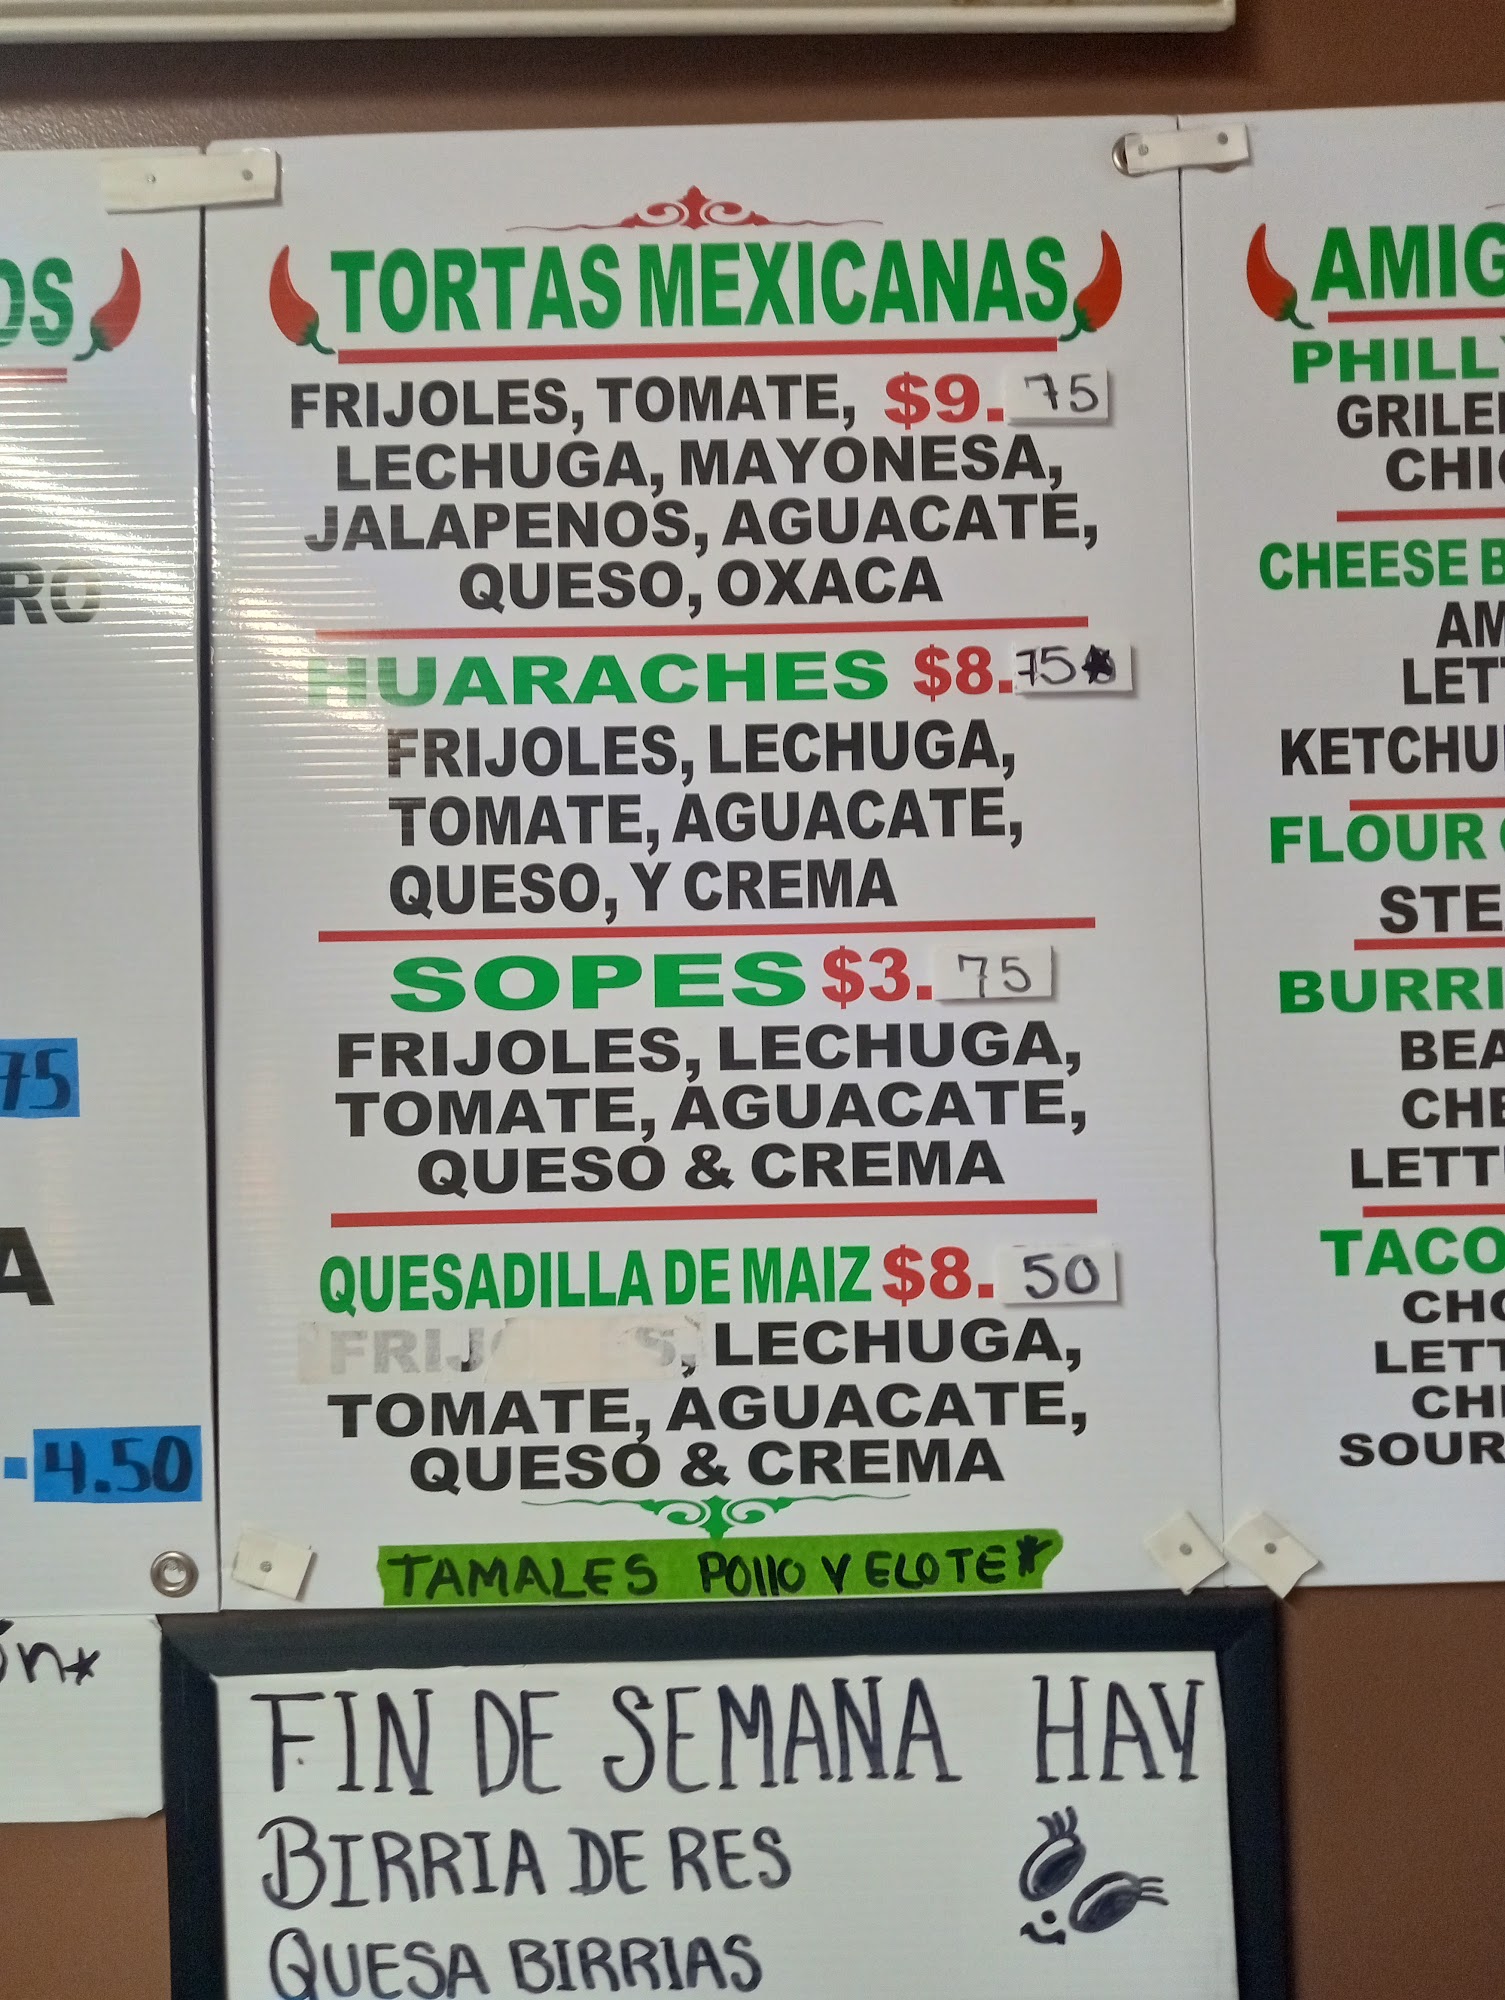 OS
RO
75
A
-4.50
ón*
TORTAS MEXICANAS
FRIJOLES, TOMATE, $9.75
LECHUGA, MAYONESA,
JALAPENOS, AGUACATE,
QUESO, OXACA
HUARACHES $8.75*
FRIJOLES, LECHUGA,
TOMATE, AGUACATE,
QUESO, Y CREMA
SOPES $3.75
FRIJOLES, LECHUGA,
TOMATE, AGUACATE,
QUESO & CREMA
QUESADILLA DE MAIZ $8.50
LECHUGA,
TOMATE, AGUACATE,
QUESO & CREMA
TAMALES POllO Y ELOTE*
FIN DE SEMANA HAY
BIRRIA DE RES
QUESA BIRRIAS
AMIG
PHILLY
GRILE
CHI
CHEESE B
AM
LETT
KETCHU
FLOUR
STE
BURRI
BEA
CHE
LETT
TACO
CHO
LETT
CHE
SOUR